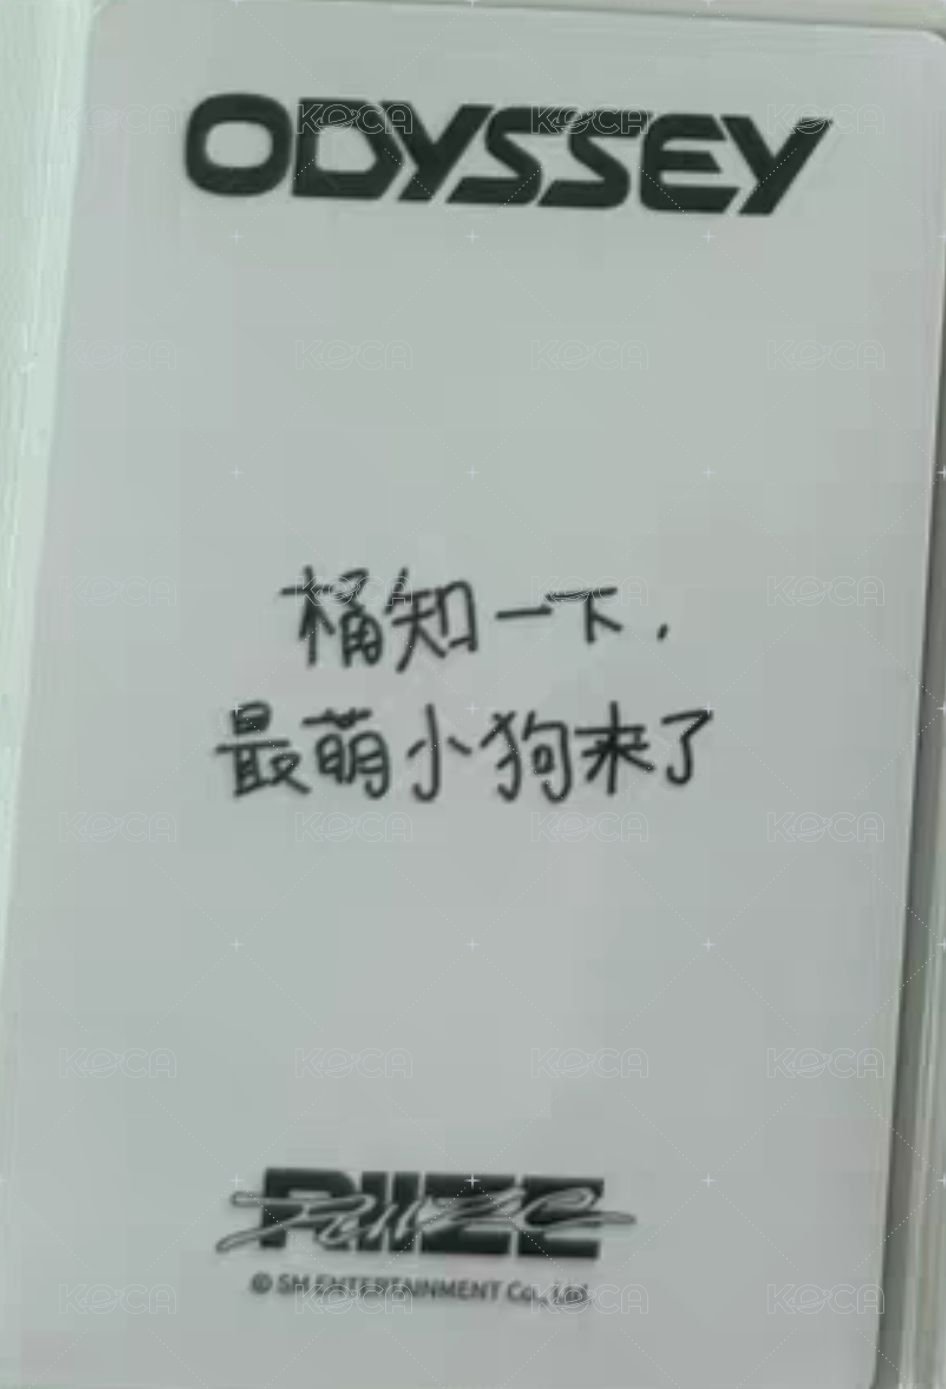 ODYSSEY
桶知一下，
最萌小狗来了
RIIZE
© SM ENTERTAINMENT Co., Ltd.
KOCA